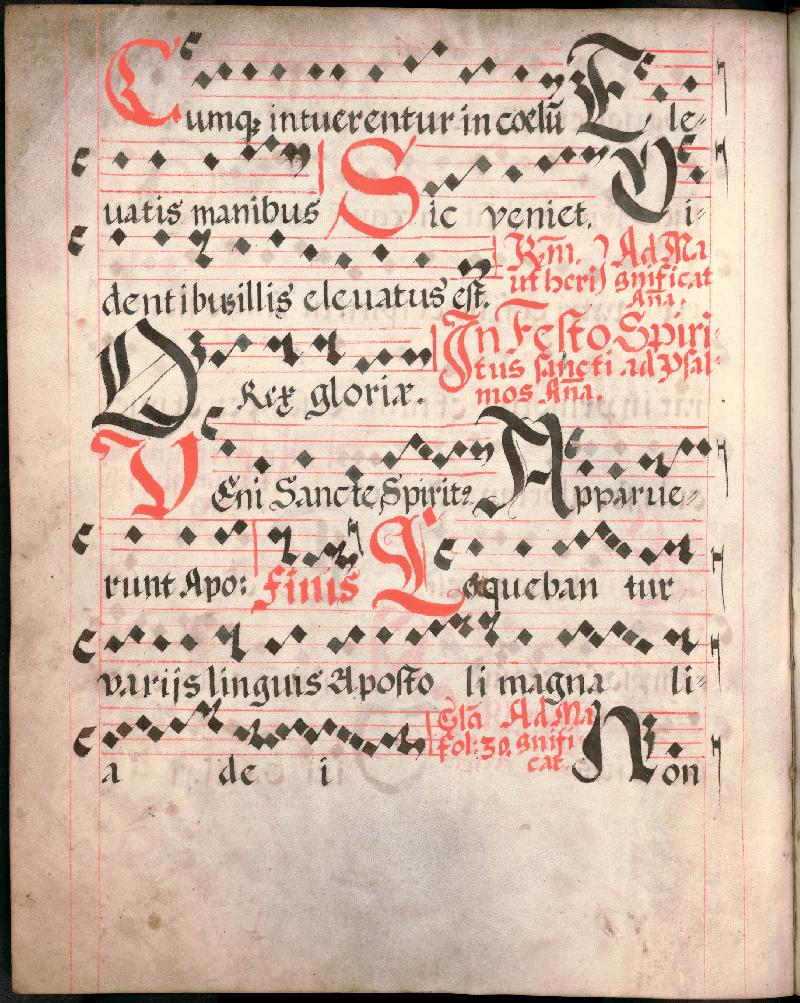 Cumq; intuerentur in cœlū Ele-
uatis manibus Sic veniet. Vi-
dentibus illis eleuatus est. Rm. ut heri) Ad Ma gnificat Aña.
O Rex gloriæ. In Festo Spiri- tus sancti ad Psal- mos Aña.
VEni Sancte Spirit⁹ Apparue-
runt Apo: finis Loqueban tur
varijs linguis Aposto li magna li-
a de i Gla fol: 30. Ad Ma gnifi cat. Non